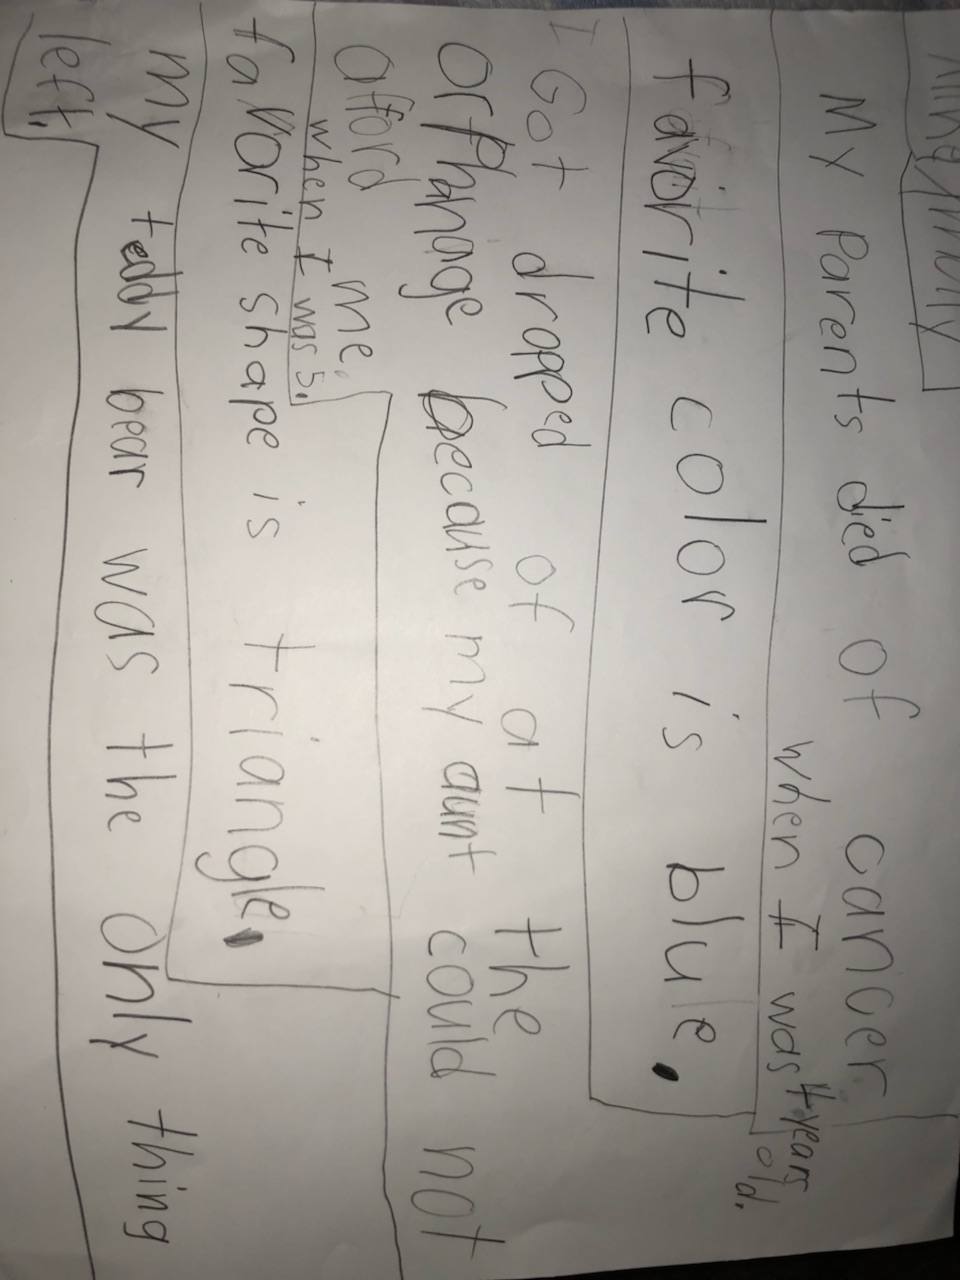 My Parents died of cancer
when I was 4 years
old.
favorite color is blue.
I Got dropped of at the
orphanage because my aunt could not
afford me.
when I was 5.
favorite shape is triangle.
My teddy bear was the only thing
left.